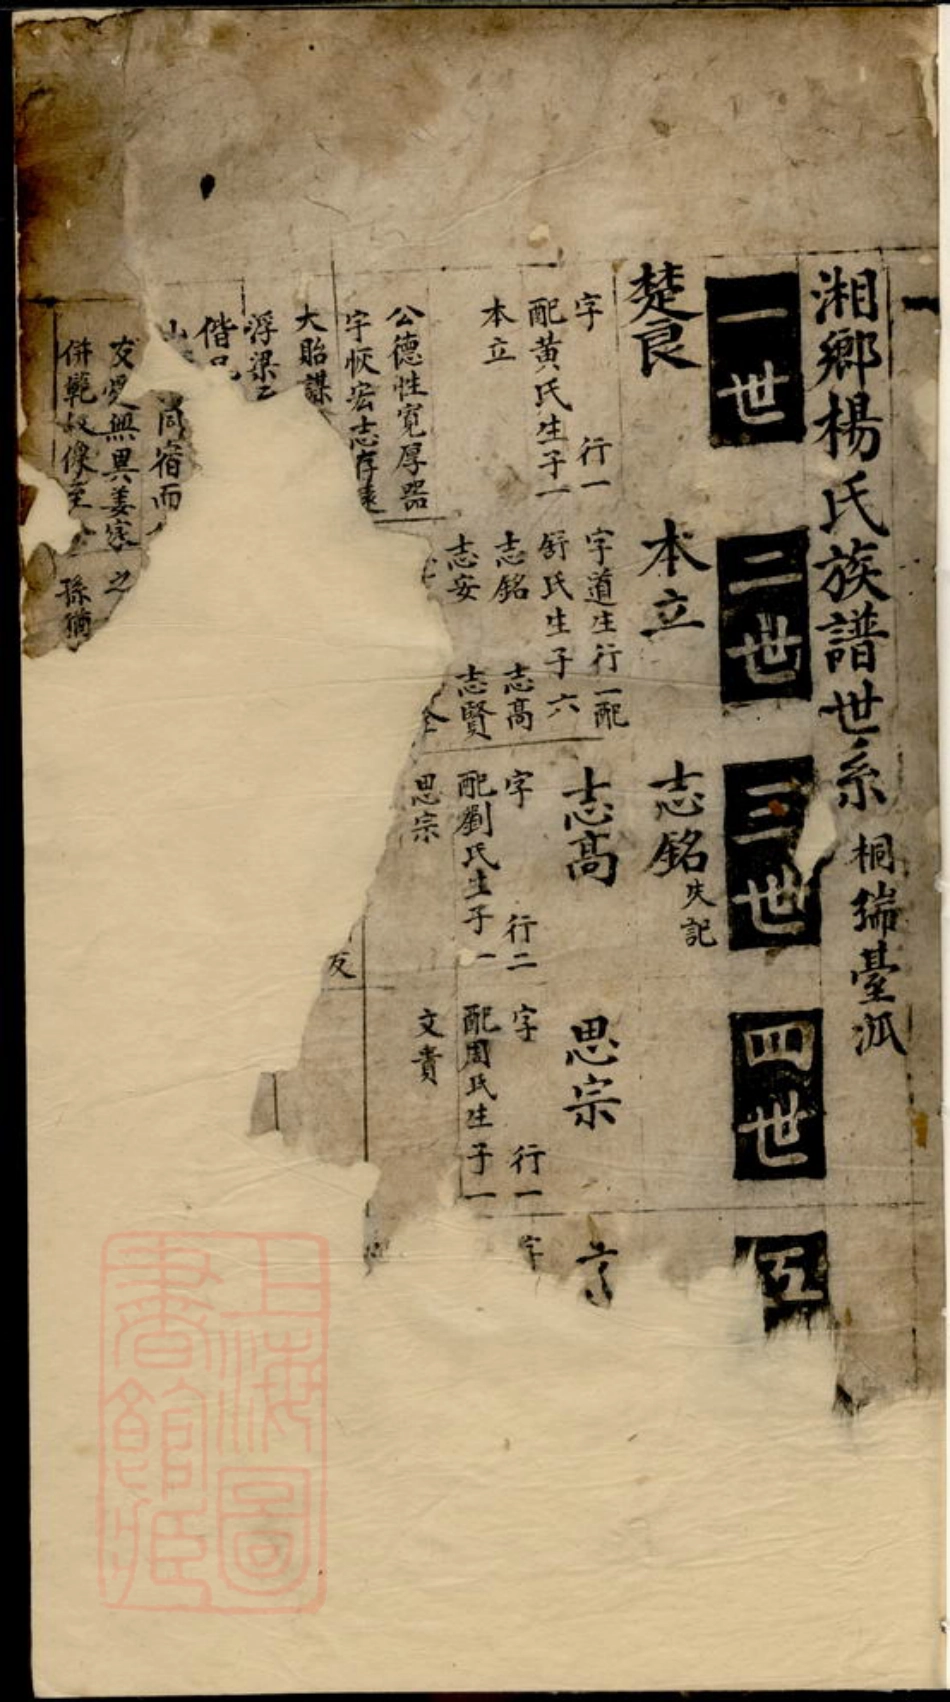 湘鄉楊氏族譜世系 桐瑞臺派
一世
二世
三世
四世
五
楚良
字 行一
配黃氏生子一
本立
公德性寬厚器
字恢宏志存遠
大貽謀
浮梁
偕兄
同宿而
友愛無異姜家之
孫猶
本立
字道生行一配
舒氏生子六
志銘 志高
志安 志賢
志銘 失記
志高
字 行二
配劉氏生子一
思宗
友
思宗
字 行一
配周氏生子一
文貴
字
上海圖書館藏